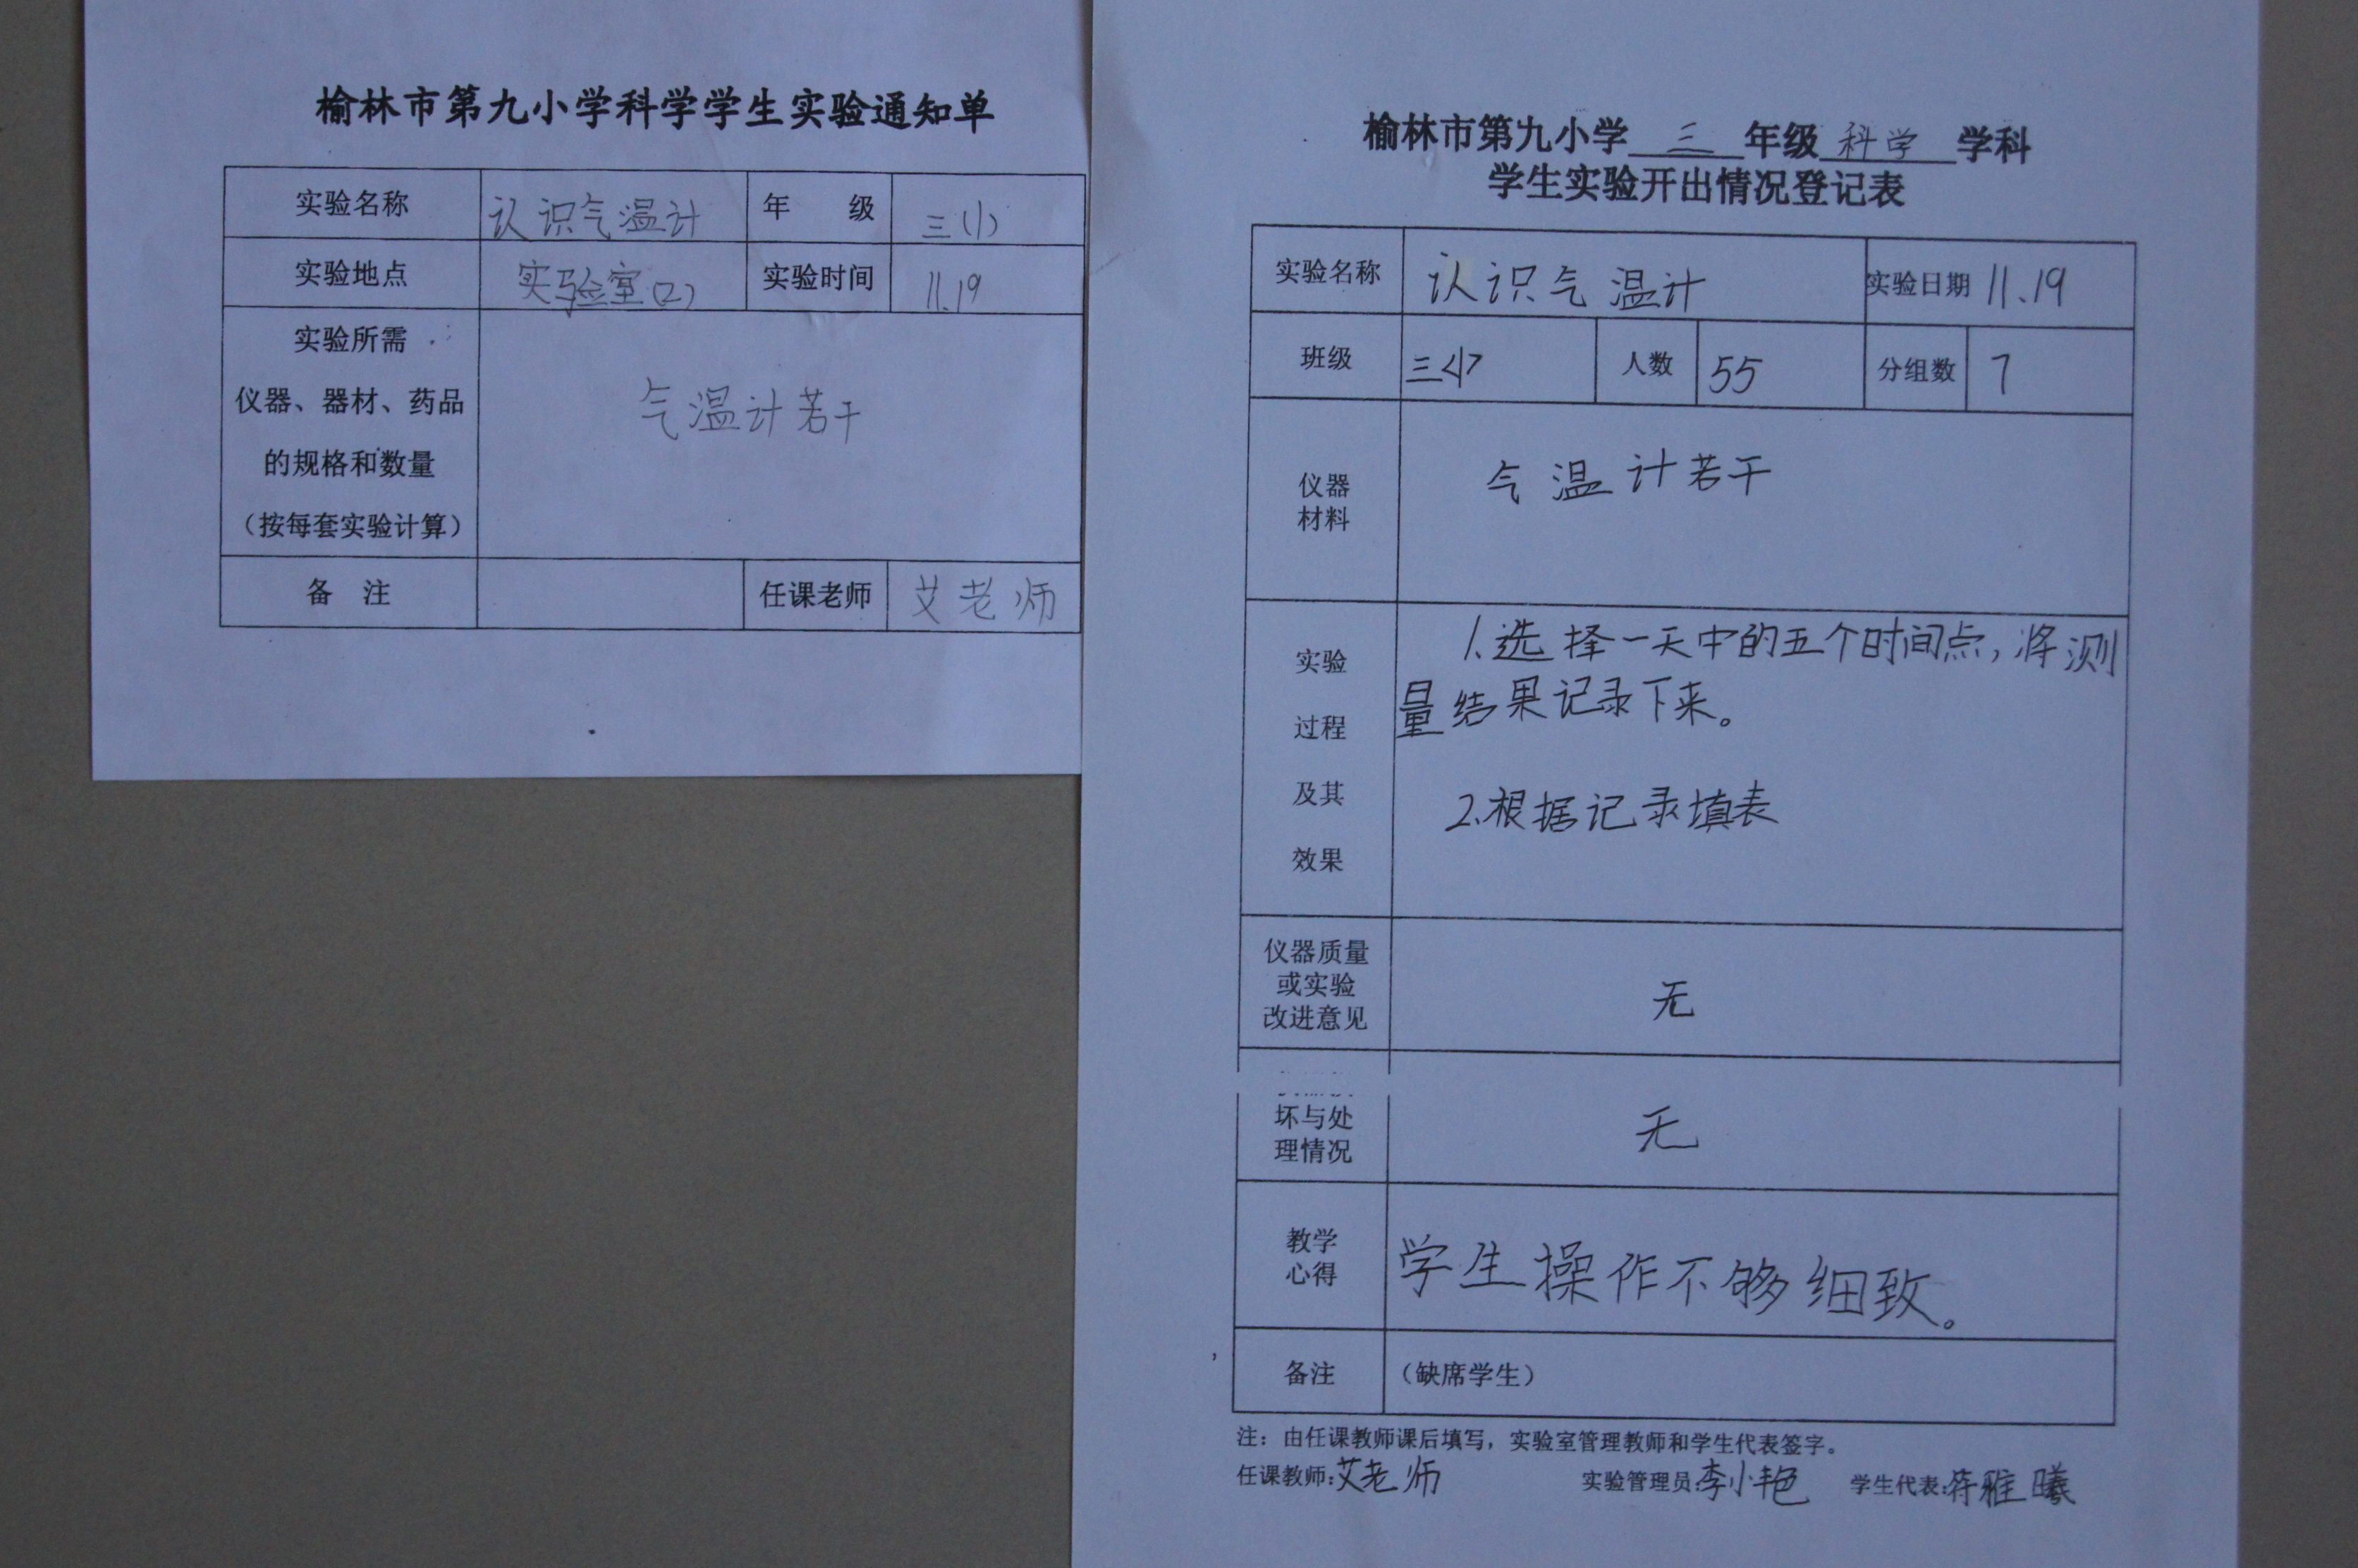 榆林市第九小学科学学生实验通知单
实验名称 认识气温计 年 级 三(1)
实验地点 实验室(2) 实验时间 11.19
实验所需
仪器、器材、药品
的规格和数量
（按每套实验计算）
气温计若干
备 注 任课老师 艾老师
榆林市第九小学 三 年级 科学 学科
学生实验开出情况登记表
实验名称 认识气温计 实验日期 11.19
班级 三(1) 人数 55 分组数 7
仪器
材料
气温计若干
实验
过程
及其
效果
1.选择一天中的五个时间点，将测
量结果记录下来。
2.根据记录填表
仪器质量
或实验
改进意见
无
坏与处
理情况
无
教学
心得
学生操作不够细致。
备注 （缺席学生）
注：由任课教师课后填写，实验室管理教师和学生代表签字。
任课教师:艾老师 实验管理员:李小艳 学生代表:符雅曦